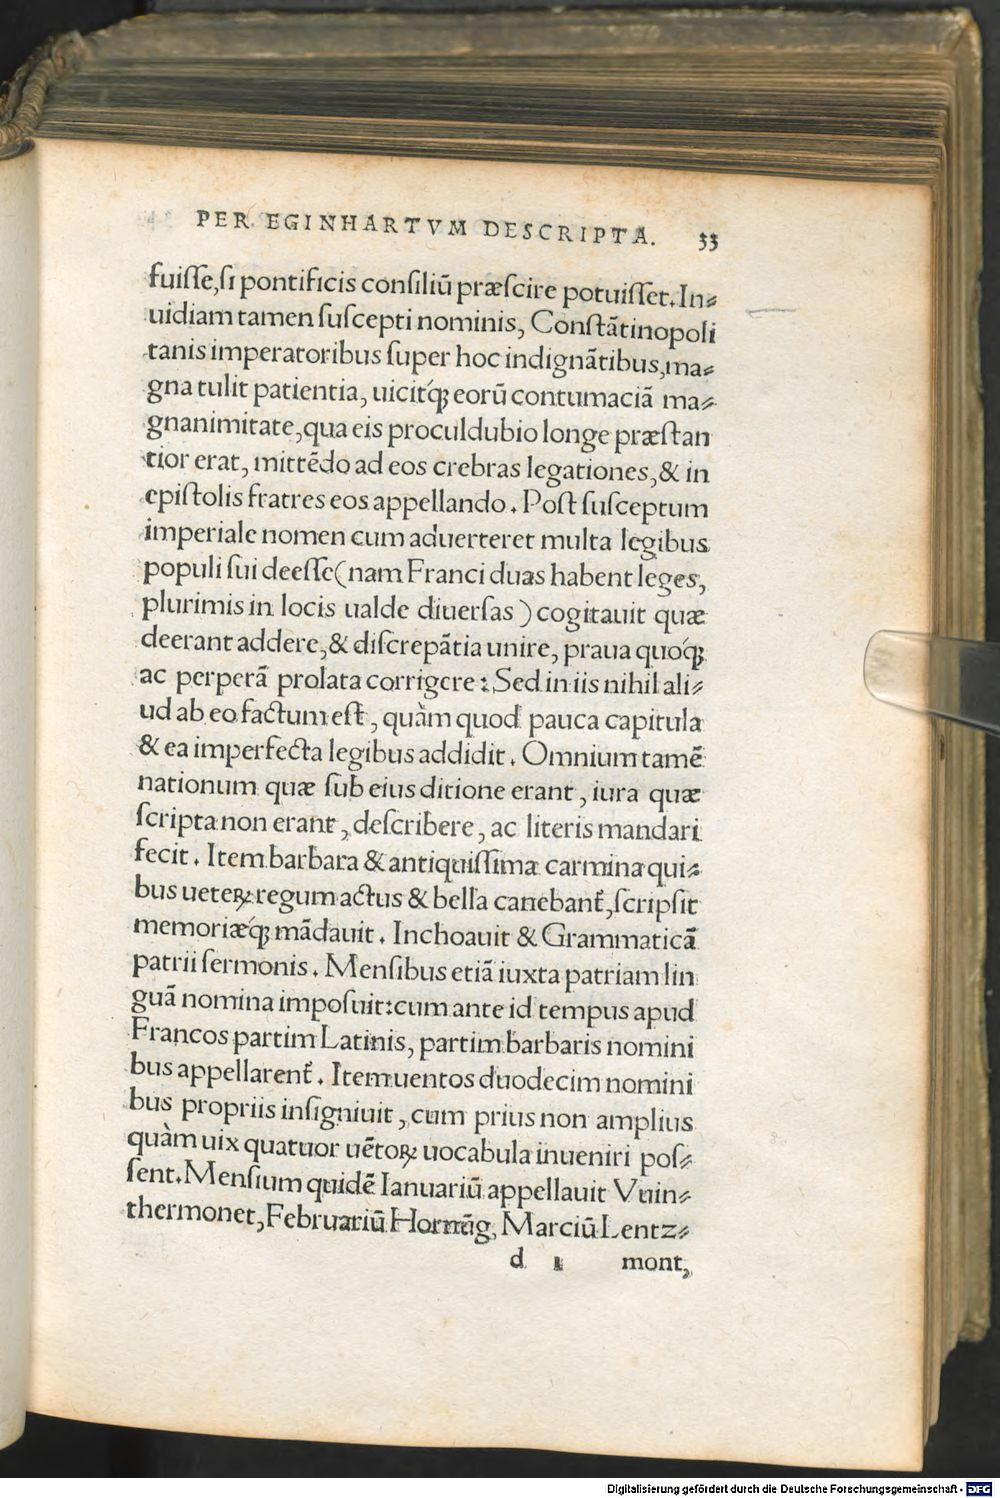 PER EGINHARTVM DESCRIPTA. 33
fuiſſe,ſi pontificis conſiliũ præſcire potuiſſet.In⸗
uidiam tamen ſuſcepti nominis, Conſtãtinopoli
tanis imperatoribus ſuper hoc indignãtibus,ma⸗
gna tulit patientia, uicitq́ꝫ eorũ contumaciã ma⸗
gnanimitate,qua eis proculdubio longe præſtan
tior erat, mittẽdo ad eos crebras legationes,& in
epiſtolis fratres eos appellando. Poſt ſuſceptum
imperiale nomen cum aduerteret multa legibus
populi ſui deeſſe(nam Franci duas habent leges,
plurimis in locis ualde diuerſas) cogitauit quæ
deerant addere,& diſcrepãtia unire, praua quoq́ꝫ
ac perperã prolata corrigere: Sed in iis nihil ali⸗
ud ab eo factum eſt, quàm quod pauca capitula
& ea imperfecta legibus addidit. Omnium tamẽ
nationum quæ ſub eius ditione erant, iura quæ
ſcripta non erant, deſcribere, ac literis mandari
fecit. Item barbara & antiquiſſima carmina qui⸗
bus ueteꝝ regum actus & bella canebant̃,ſcripſit
memoriæq́ꝫ mãdauit. Inchoauit & Grammaticã
patrii ſermonis. Menſibus etiã iuxta patriam lin
guã nomina impoſuit:cum ante id tempus apud
Francos partim Latinis, partim barbaris nomini
bus appellarent̃. Item uentos duodecim nomini
bus propriis inſigniuit, cum prius non amplius
quàm uix quatuor uẽtoꝝ uocabula inueniri poſ⸗
ſent.Menſium quidẽ Ianuariũ appellauit Vuin⸗
thermonet,Februariũ Hornũg, Marciũ Lentz⸗
d 1 mont,
Digitalisierung gefördert durch die Deutsche Forschungsgemeinschaft - DFG